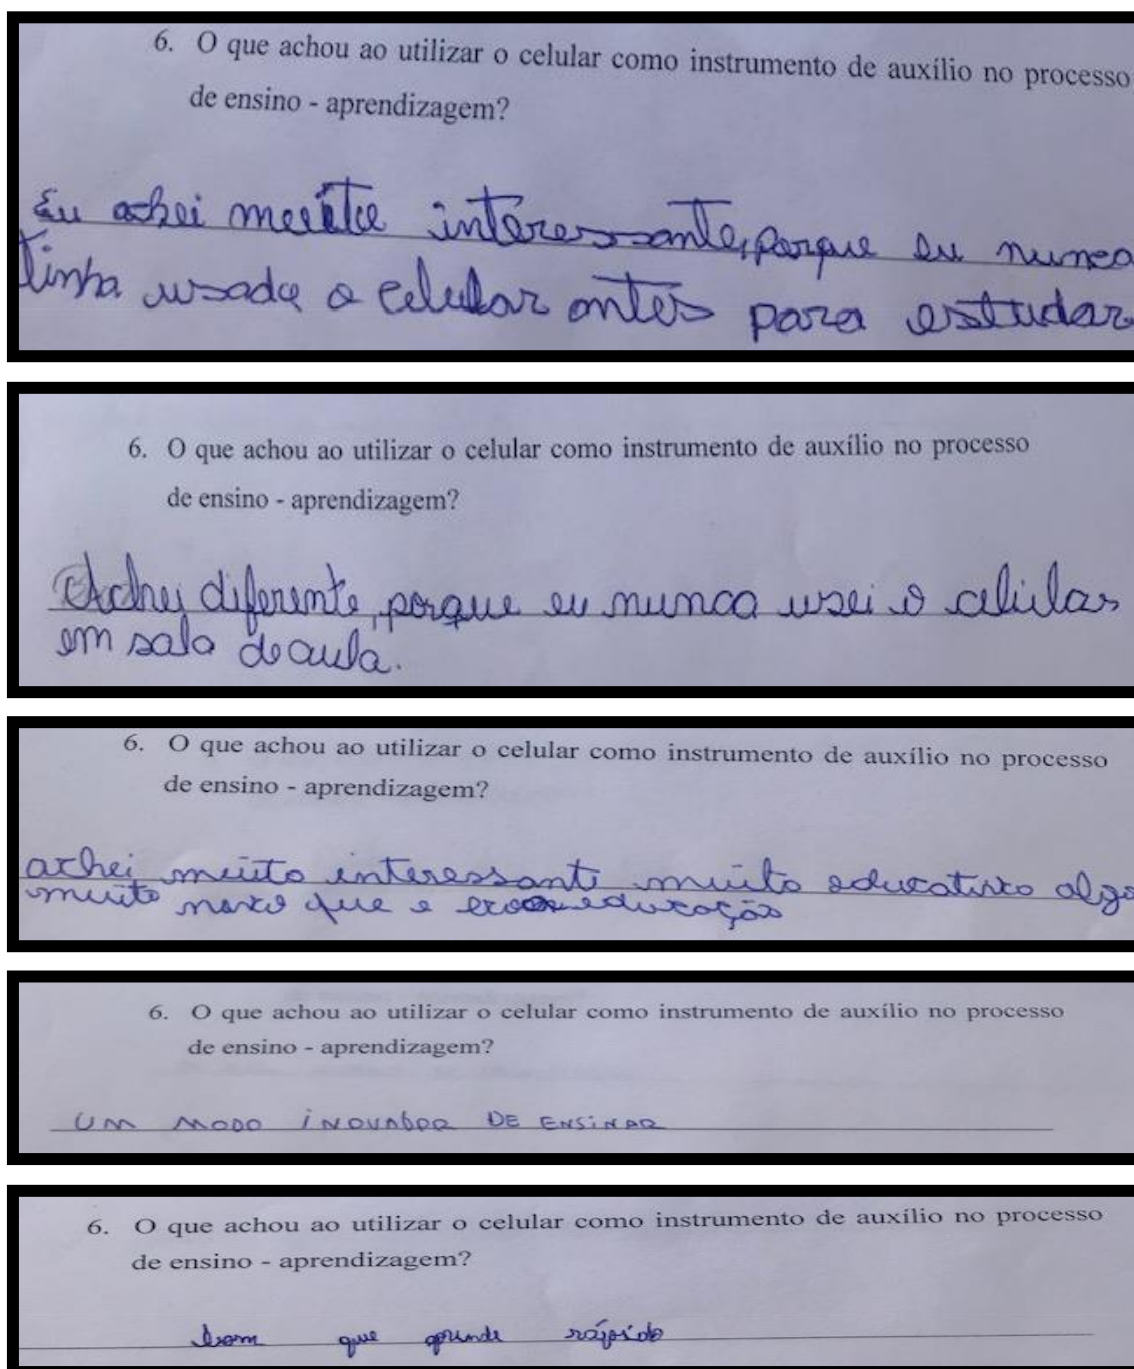 6. O que achou ao utilizar o celular como instrumento de auxílio no processo
de ensino - aprendizagem?
Eu achei muito interessante, porque eu nunca
tinha usado o celular antes para estudar
6. O que achou ao utilizar o celular como instrumento de auxílio no processo
de ensino - aprendizagem?
Achei diferente, porque eu nunca usei o celular
em sala de aula.
6. O que achou ao utilizar o celular como instrumento de auxílio no processo
de ensino - aprendizagem?
achei muito interessante muito educativo algo
muito novo que e educação
6. O que achou ao utilizar o celular como instrumento de auxílio no processo
de ensino - aprendizagem?
UM MODO INOVADOR DE ENSINAR
6. O que achou ao utilizar o celular como instrumento de auxílio no processo
de ensino - aprendizagem?
bom que aprende rápido